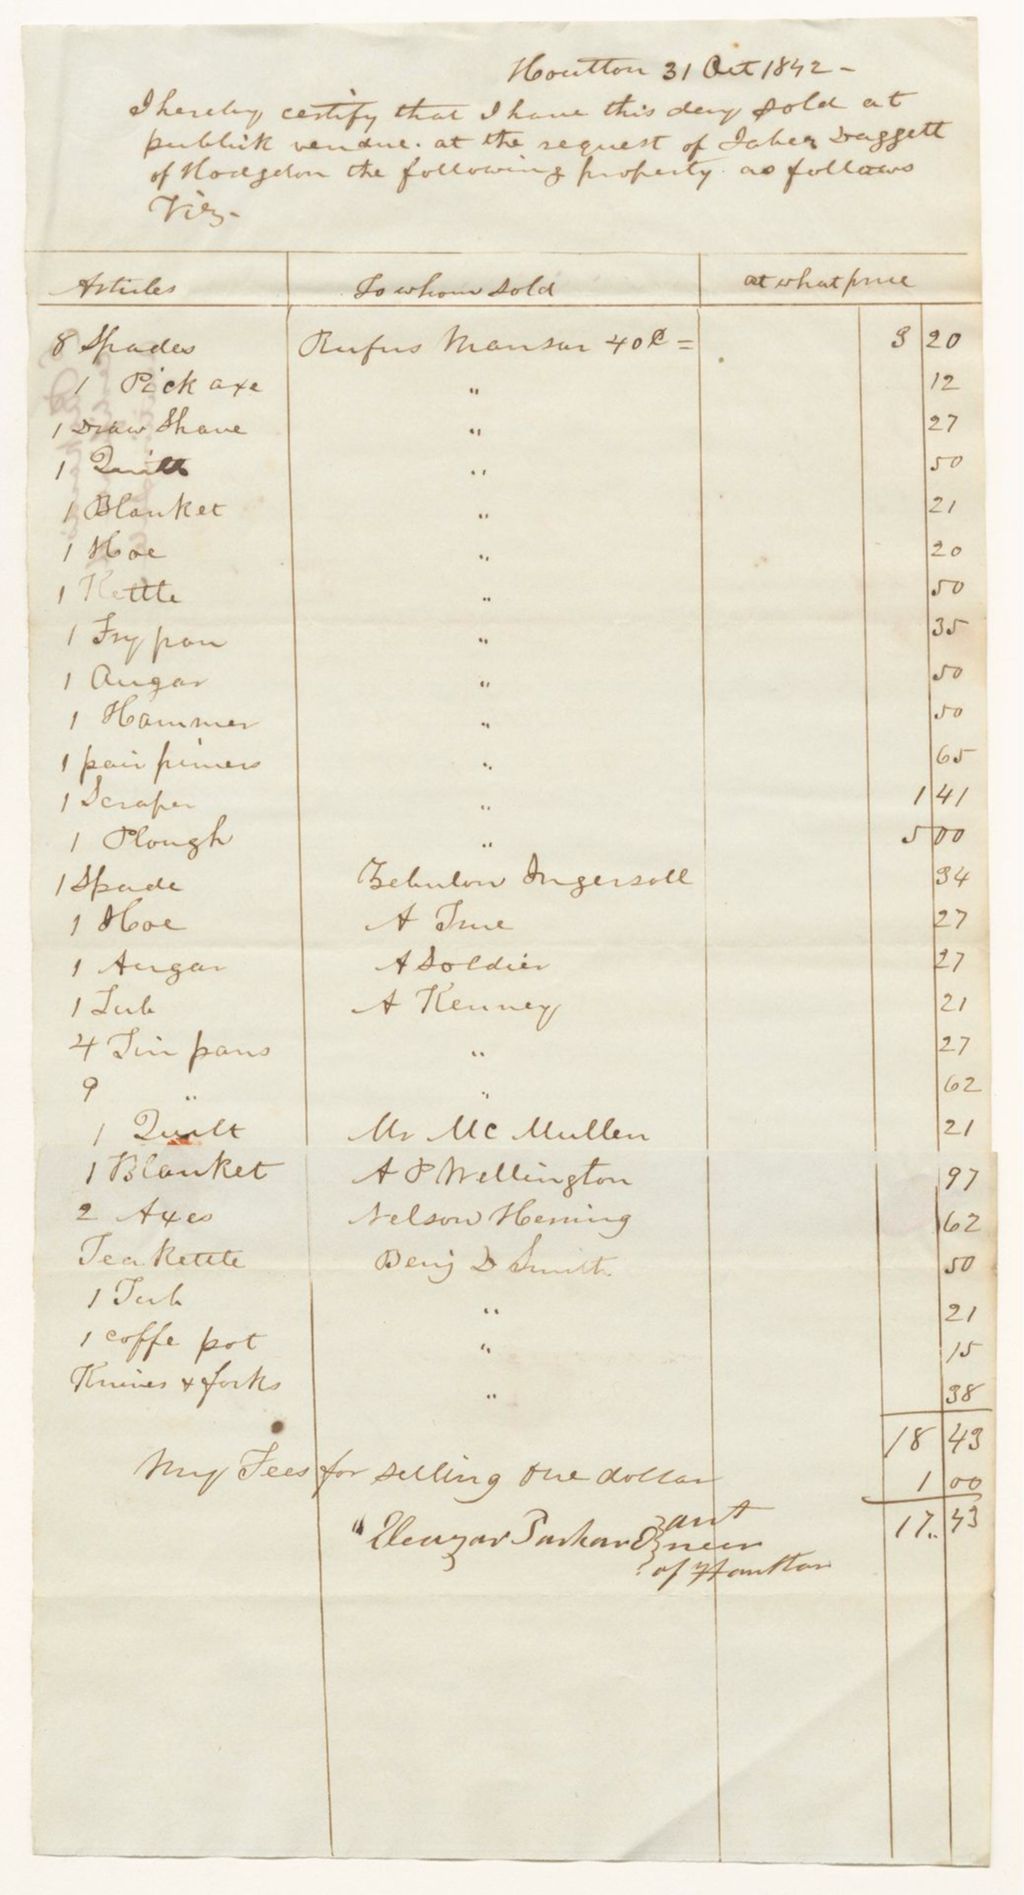 Houlton 31 Oct 1842 -
I hereby certify that I have this day sold at
publick vendue. at the request of Jabez Daggett
of Hodgdon the following property as follows
Viz -
Articles To whom sold at what price
8 Spades Rufus Mansur 40¢ = 3 20
1 Pick axe " 12
1 Draw Shave " 27
1 Quilt " 50
1 Blanket " 21
1 Hoe " 20
1 Kettle " 50
1 Fry pan " 35
1 Augar " 50
1 Hammer " 50
1 pair " 65
1 Scraper " 1 41
1 Plough " 5 00
1 Spade Zebulon Ingersoll 34
1 Hoe A True 27
1 Augar A Soldier 27
1 Tub A Kenney 21
4 Tin pans " 27
9 " " 62
1 Quilt Mr McMullen 21
1 Blanket A P Wellington 97
2 Axes Nelson Hening 62
Tea Kettle Benj D Smith 50
1 Tub " 21
1 coffe pot " 15
Knives & forks " 38
18 43
My Fees for selling one dollar 1 00
"Eleazar Parker auct 17.. 43
neer
of Houlton